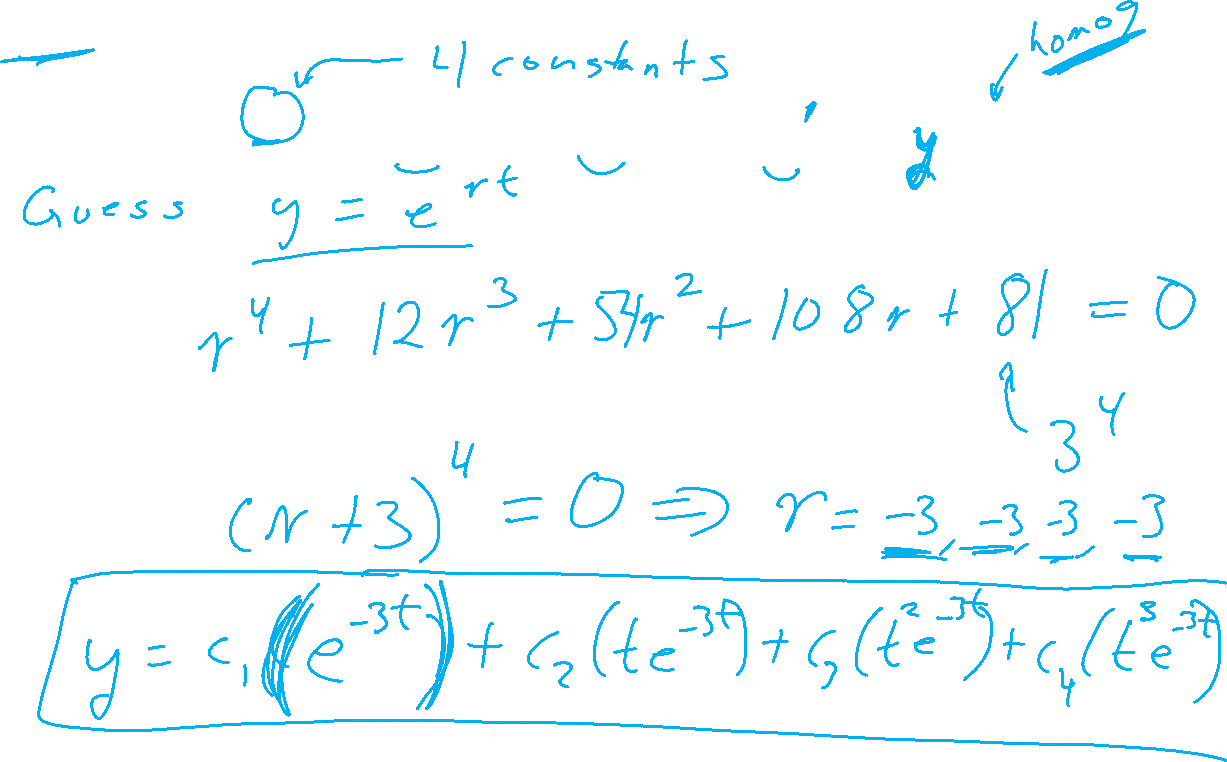 homog
4 constants
y
Guess y = e^{rt}
r^4 + 12r^3 + 54r^2 + 108r + 81 = 0
3^4
(r+3)^4 = 0 ⇒ r = -3, -3, -3, -3
y = c_1(e^{-3t}) + c_2(te^{-3t}) + c_3(t^2e^{-3t}) + c_4(t^3e^{-3t})